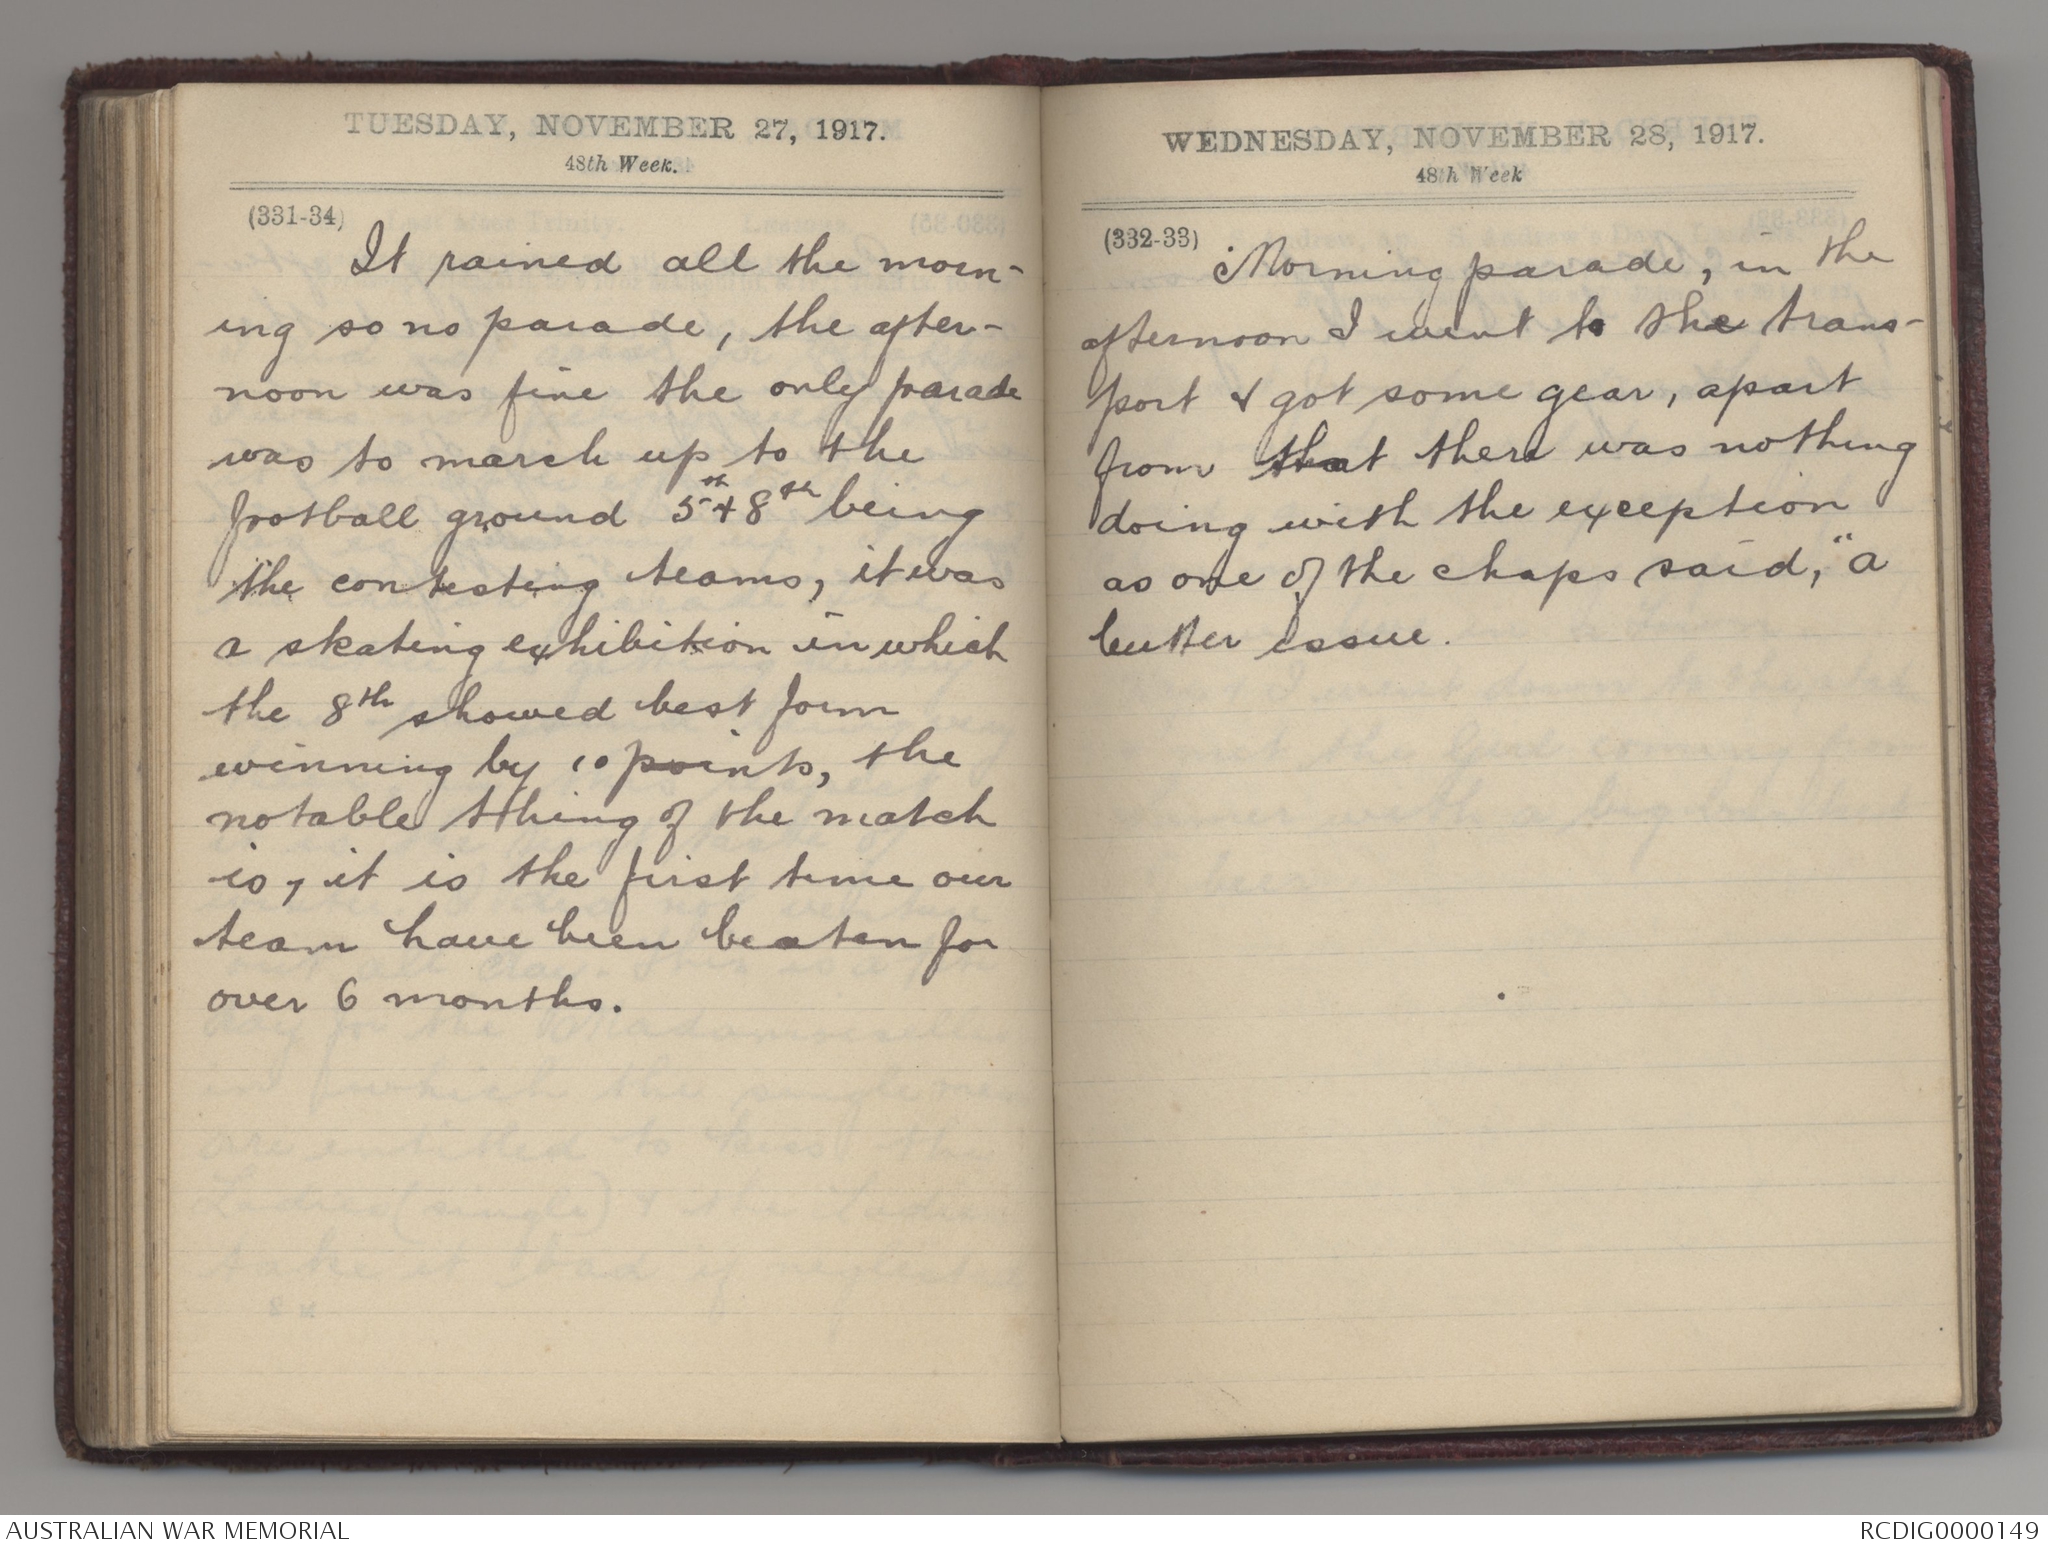 TUESDAY, NOVEMBER 27, 1917.
48th Week.
(331-34)
It rained all the morn-
ing so no parade, the after-
noon was fine the only parade
was to march up to the
football ground 5th & 8th being
the contesting teams, it was
a skating exhibition in which
the 8th showed best form
winning by 10 points, the
notable thing of the match
is, it is the first time our
team have been beaten for
over 6 months.
WEDNESDAY, NOVEMBER 28, 1917.
48th Week
(332-33)
Morning parade, in the
afternoon I went to the trans-
port & got some gear, apart
from that there was nothing
doing with the exception
as one of the chaps said, "a
butter issue.
AUSTRALIAN WAR MEMORIAL
RCDIG0000149